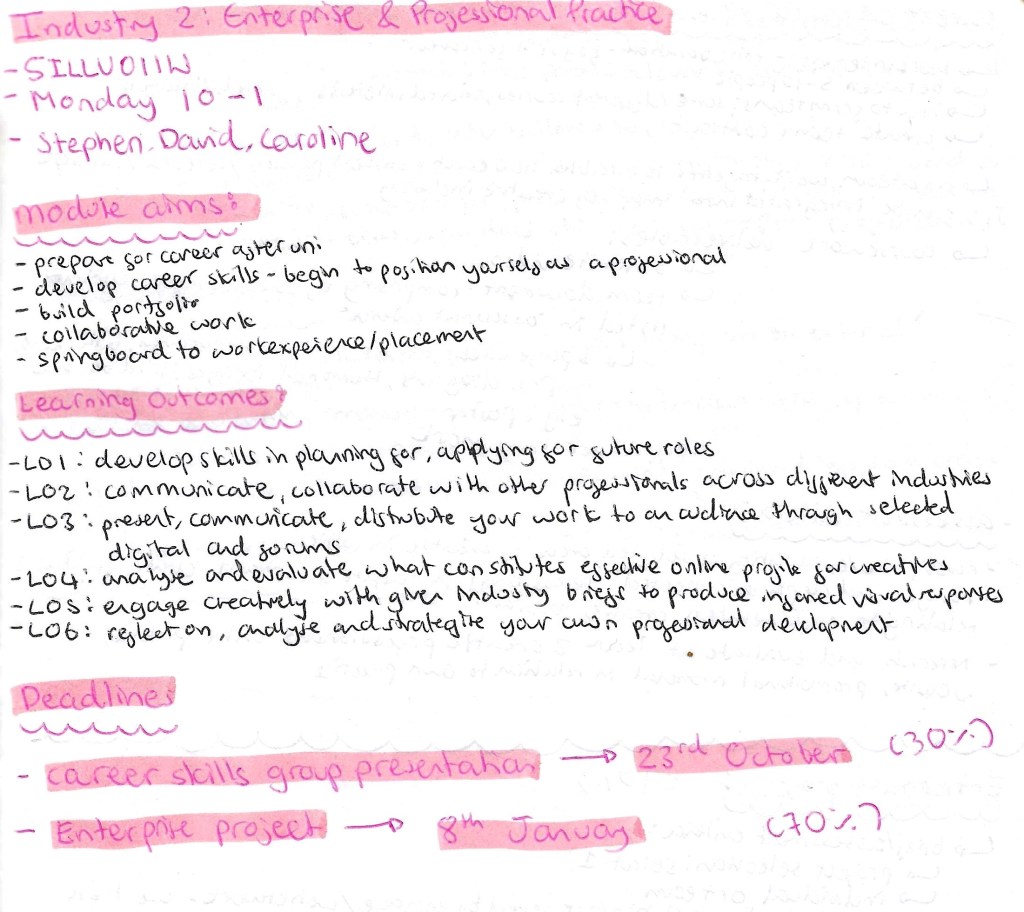 Industry 2: Enterprise & Professional Practice
- SILLU011W
- Monday 10-1
- Stephen, David, Caroline
Module aims:
- prepare for career after uni
- develop career skills - begin to position yourself as a professional
- build portfolio
- collaborative work
- springboard to workexperience/placement
Learning outcomes:
- LO1: develop skills in planning for, applying for future roles
- LO2: communicate, collaborate with other professionals across different industries
- LO3: present, communicate, distribute your work to an audience through selected
digital and forums
- LO4: analyse and evaluate what constitutes effective online profile for creatives
- LO5: engage creatively with given industry briefs to produce informed visual responses
- LO6: reflect on, analyse and strategise your own professional development
Deadlines
- career skills group presentation → 23rd October (30%)
- Enterprise project → 8th January (70%)